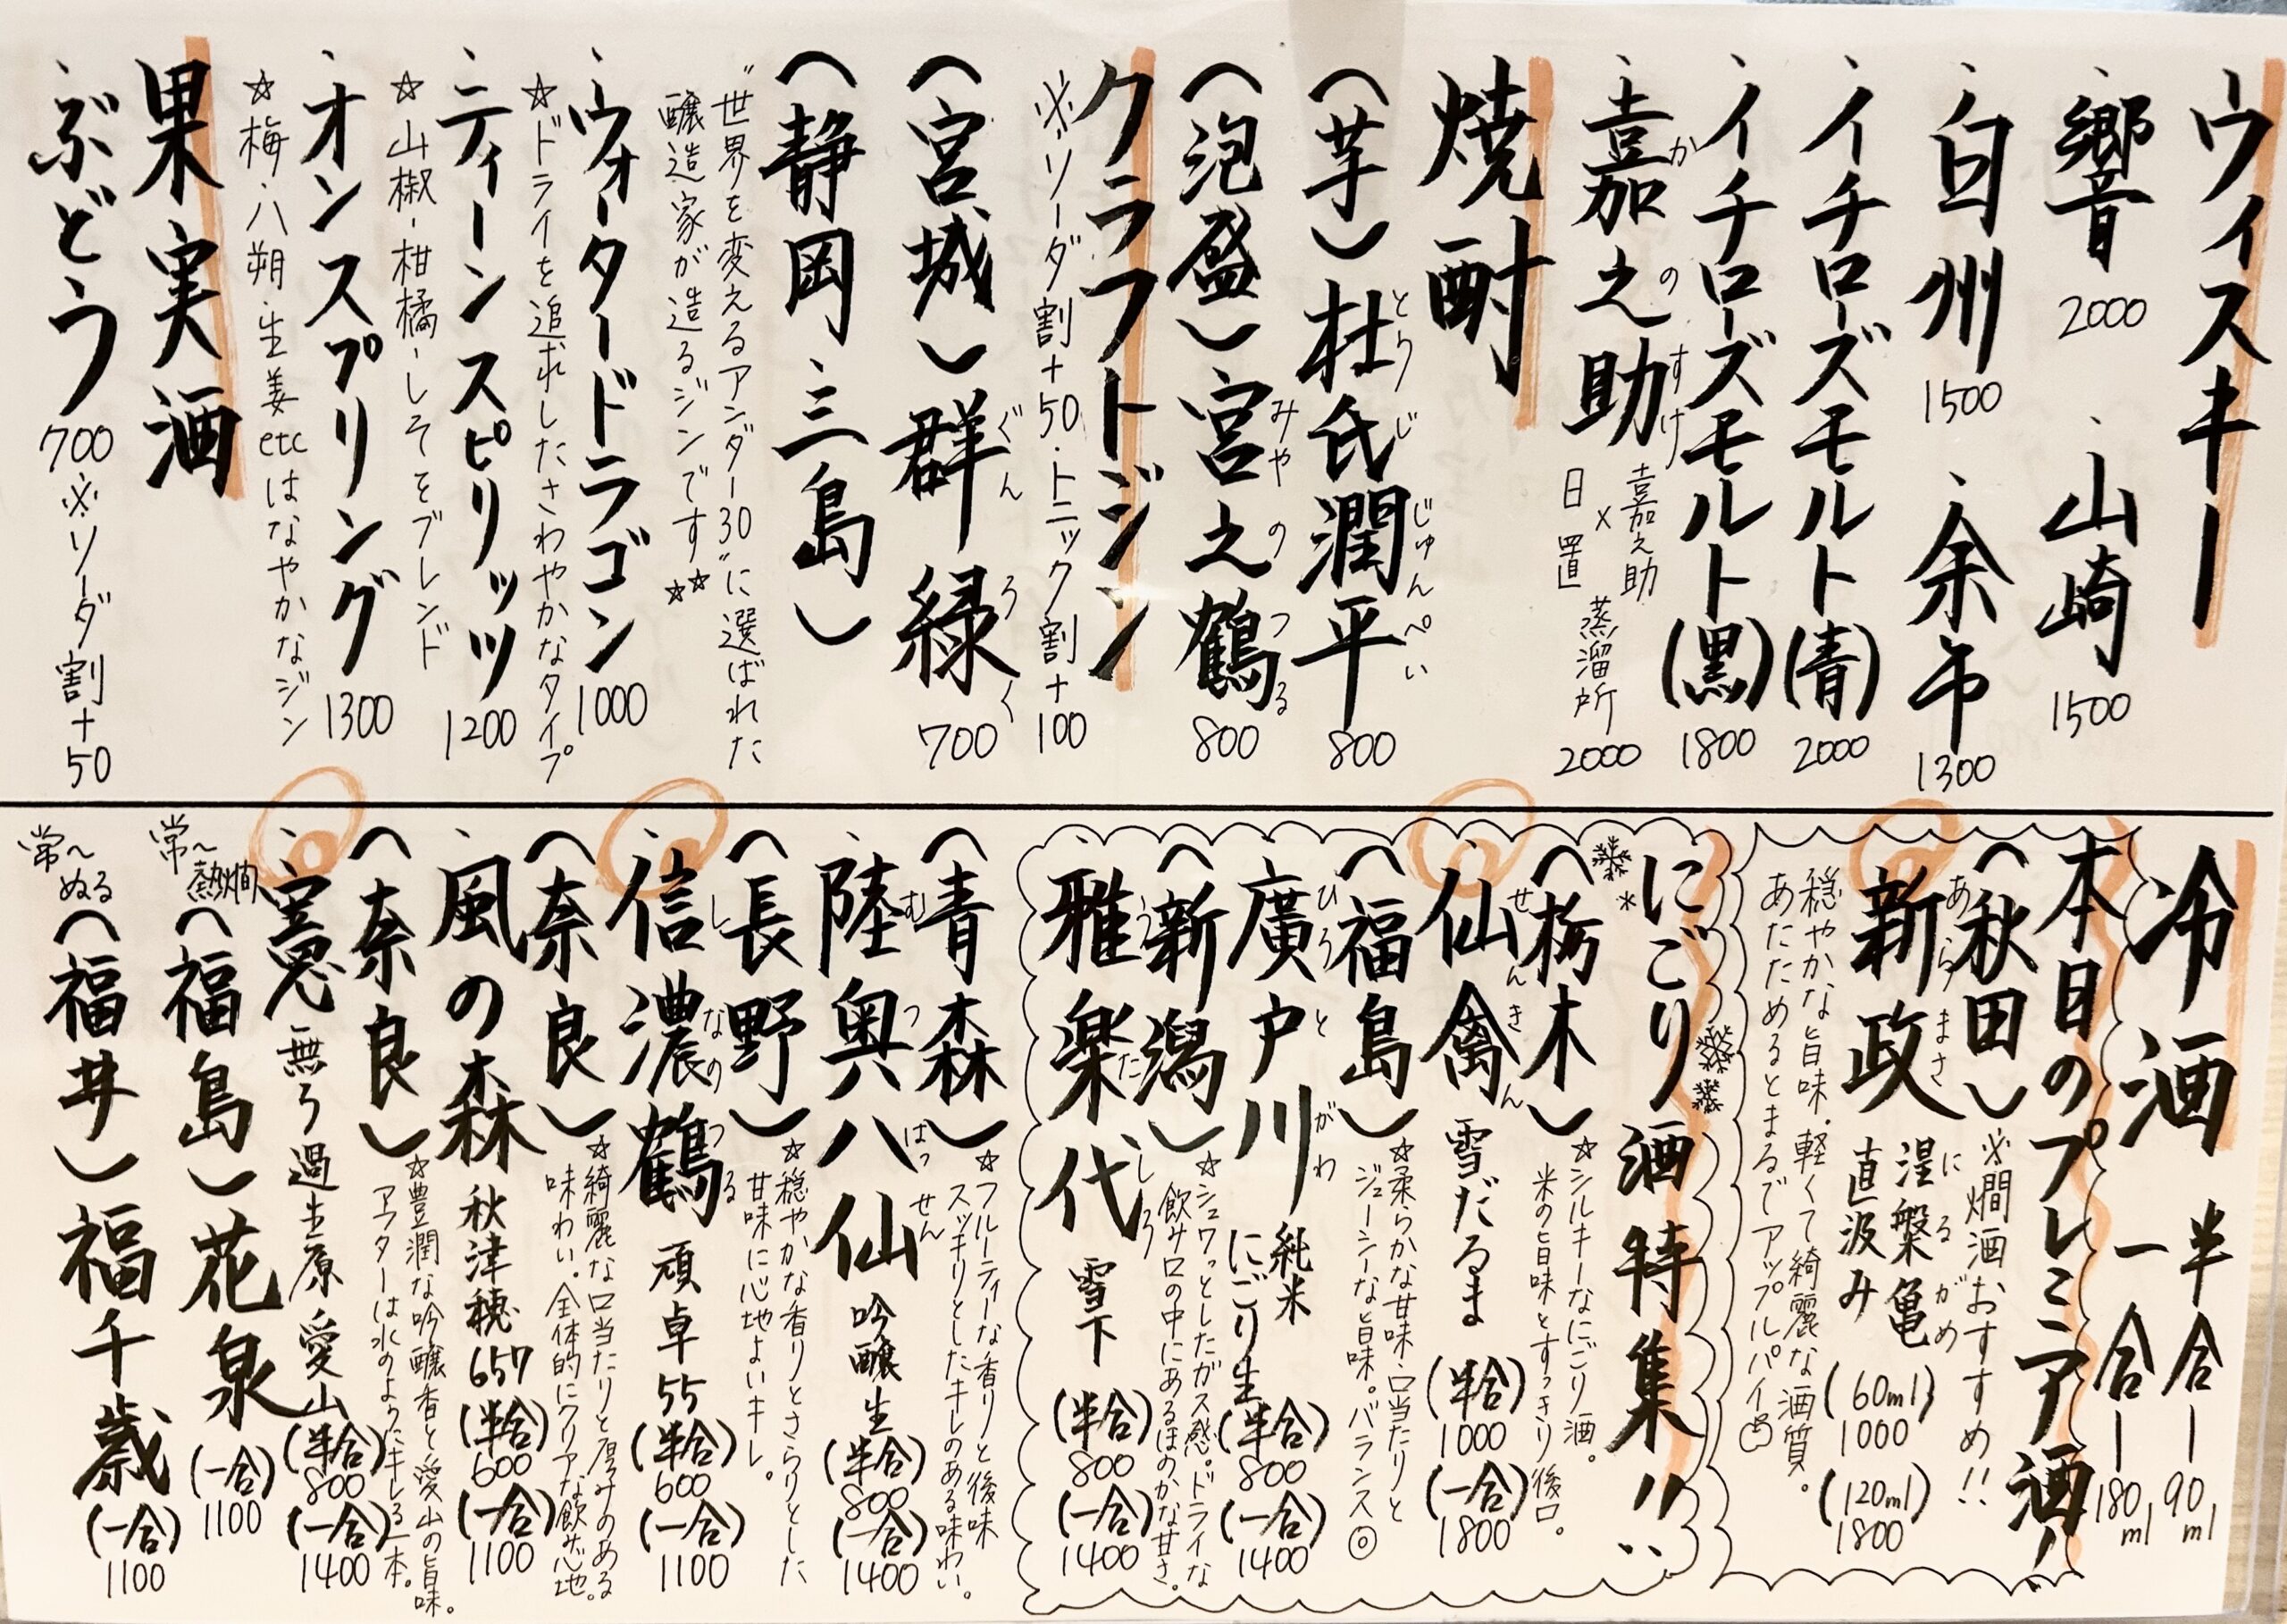 ウィスキー
・響 2000 ・山崎 1500
・白州 1500 ・余市 1300
・イチローズモルト(青) 2000
・イチローズモルト(黒) 1800
・嘉之助 嘉之助×日置 蒸溜所 2000
かのすけ
焼酎
(芋)杜氏潤平 800
とうじじゅんぺい
(泡盛)宮之鶴 800
みやのつる
クラフトジン
※ソーダ割+50・トニック割+100
(宮城)群緑 700
ぐんろく
(静岡・三島)
"世界を変えるアンダー30"に選ばれた
醸造家が造るジンです☆☆
・ウォータードラゴン 1000
☆ドライを追求したさわやかなタイプ
・ティーンスピリッツ 1200
☆山椒・柑橘・しそをブレンド
・オンスプリング 1300
☆梅・八朔・生姜etcはなやかなジン
果実酒
・ぶどう 700 ※ソーダ割+50
冷酒 半合ー90ml
一合ー180ml
本日のプレミア酒!
(秋田) ※燗酒おすすめ!!
・新政 涅槃亀 直汲み (60ml) 1000 (120ml) 1800
あらまさ にるがめ
穏やかな旨味・軽くて綺麗な酒質。
あたためるとまるでアップルパイ
にごり酒特集!!
(栃木)
☆シルキーなにごり酒。
米の旨味とすっきり後口。
・仙禽 雪だるま (半合) 1000 (一合) 1800
せんきん
(福島)
☆柔らかな甘味・口当たりと
ジューシーな旨味。バランス◎
廣戸川 純米にごり生 (半合) 800 (一合) 1400
ひろとがわ
(新潟)
☆シュワっとしたガス感。ドライな
飲み口の中にあるほのかな甘さ。
雅楽代 雪下 (半合) 800 (一合) 1400
うたしろ
(青森)
☆フルーティーな香りと後味
スッキリとしたキレのある味わい。
・陸奥八仙 吟醸生 (半合) 800 (一合) 1400
むつはっせん
(長野)
☆穏やかな香りとさらりとした
甘味に心地よいキレ。
・信濃鶴 頑卓55 (半合) 600 (一合) 1100
しなのつる
(奈良)
☆綺麗な口当たりと厚みのある
味わい。全体的にクリアな飲み心地。
・風の森 秋津穂657 (半合) 600 (一合) 1100
(奈良)
☆豊潤な吟醸香と愛山の旨味。
アフターは水のようにキレる一本。
無ろ過生原 愛山 (半合) 800 (一合) 1400
常〜熱燗 (福島)花泉 (一合) 1100
常〜ぬる (福井)福千歳 (一合) 1100